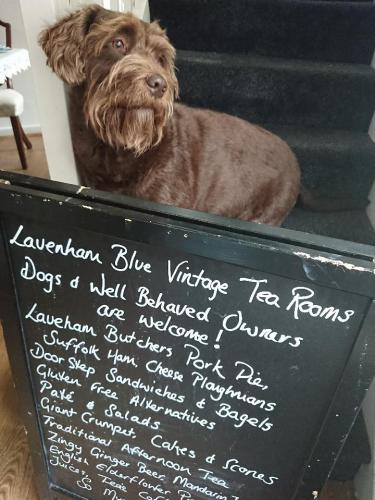 Lavenham Blue Vintage Tea Rooms
Dogs & Well Behaved Owners
are welcome!
Lavenham Butchers Pork Pie,
Suffolk Ham, Cheese Ploughmans
Door Step Sandwiches & Bagels
Gluten Free Alternatives
Paté & Salads
Giant Crumpet, Cakes & Scones
Traditional Afternoon Tea
Zingy Ginger Beer, Mandarin
English Elderflower
Juices,